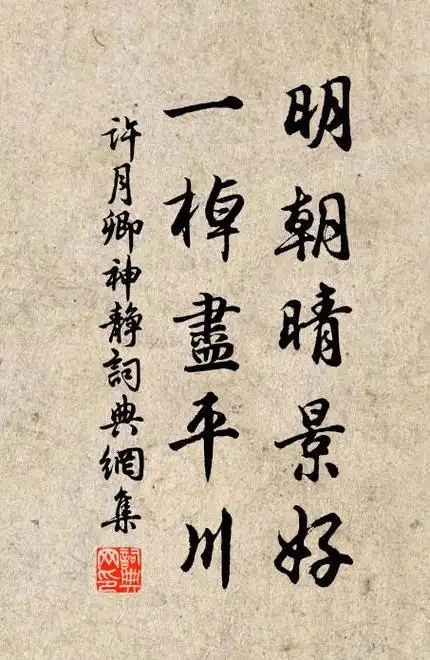 明朝晴景好
一棹盡平川
许月卿神静詞典網集
詞典網印